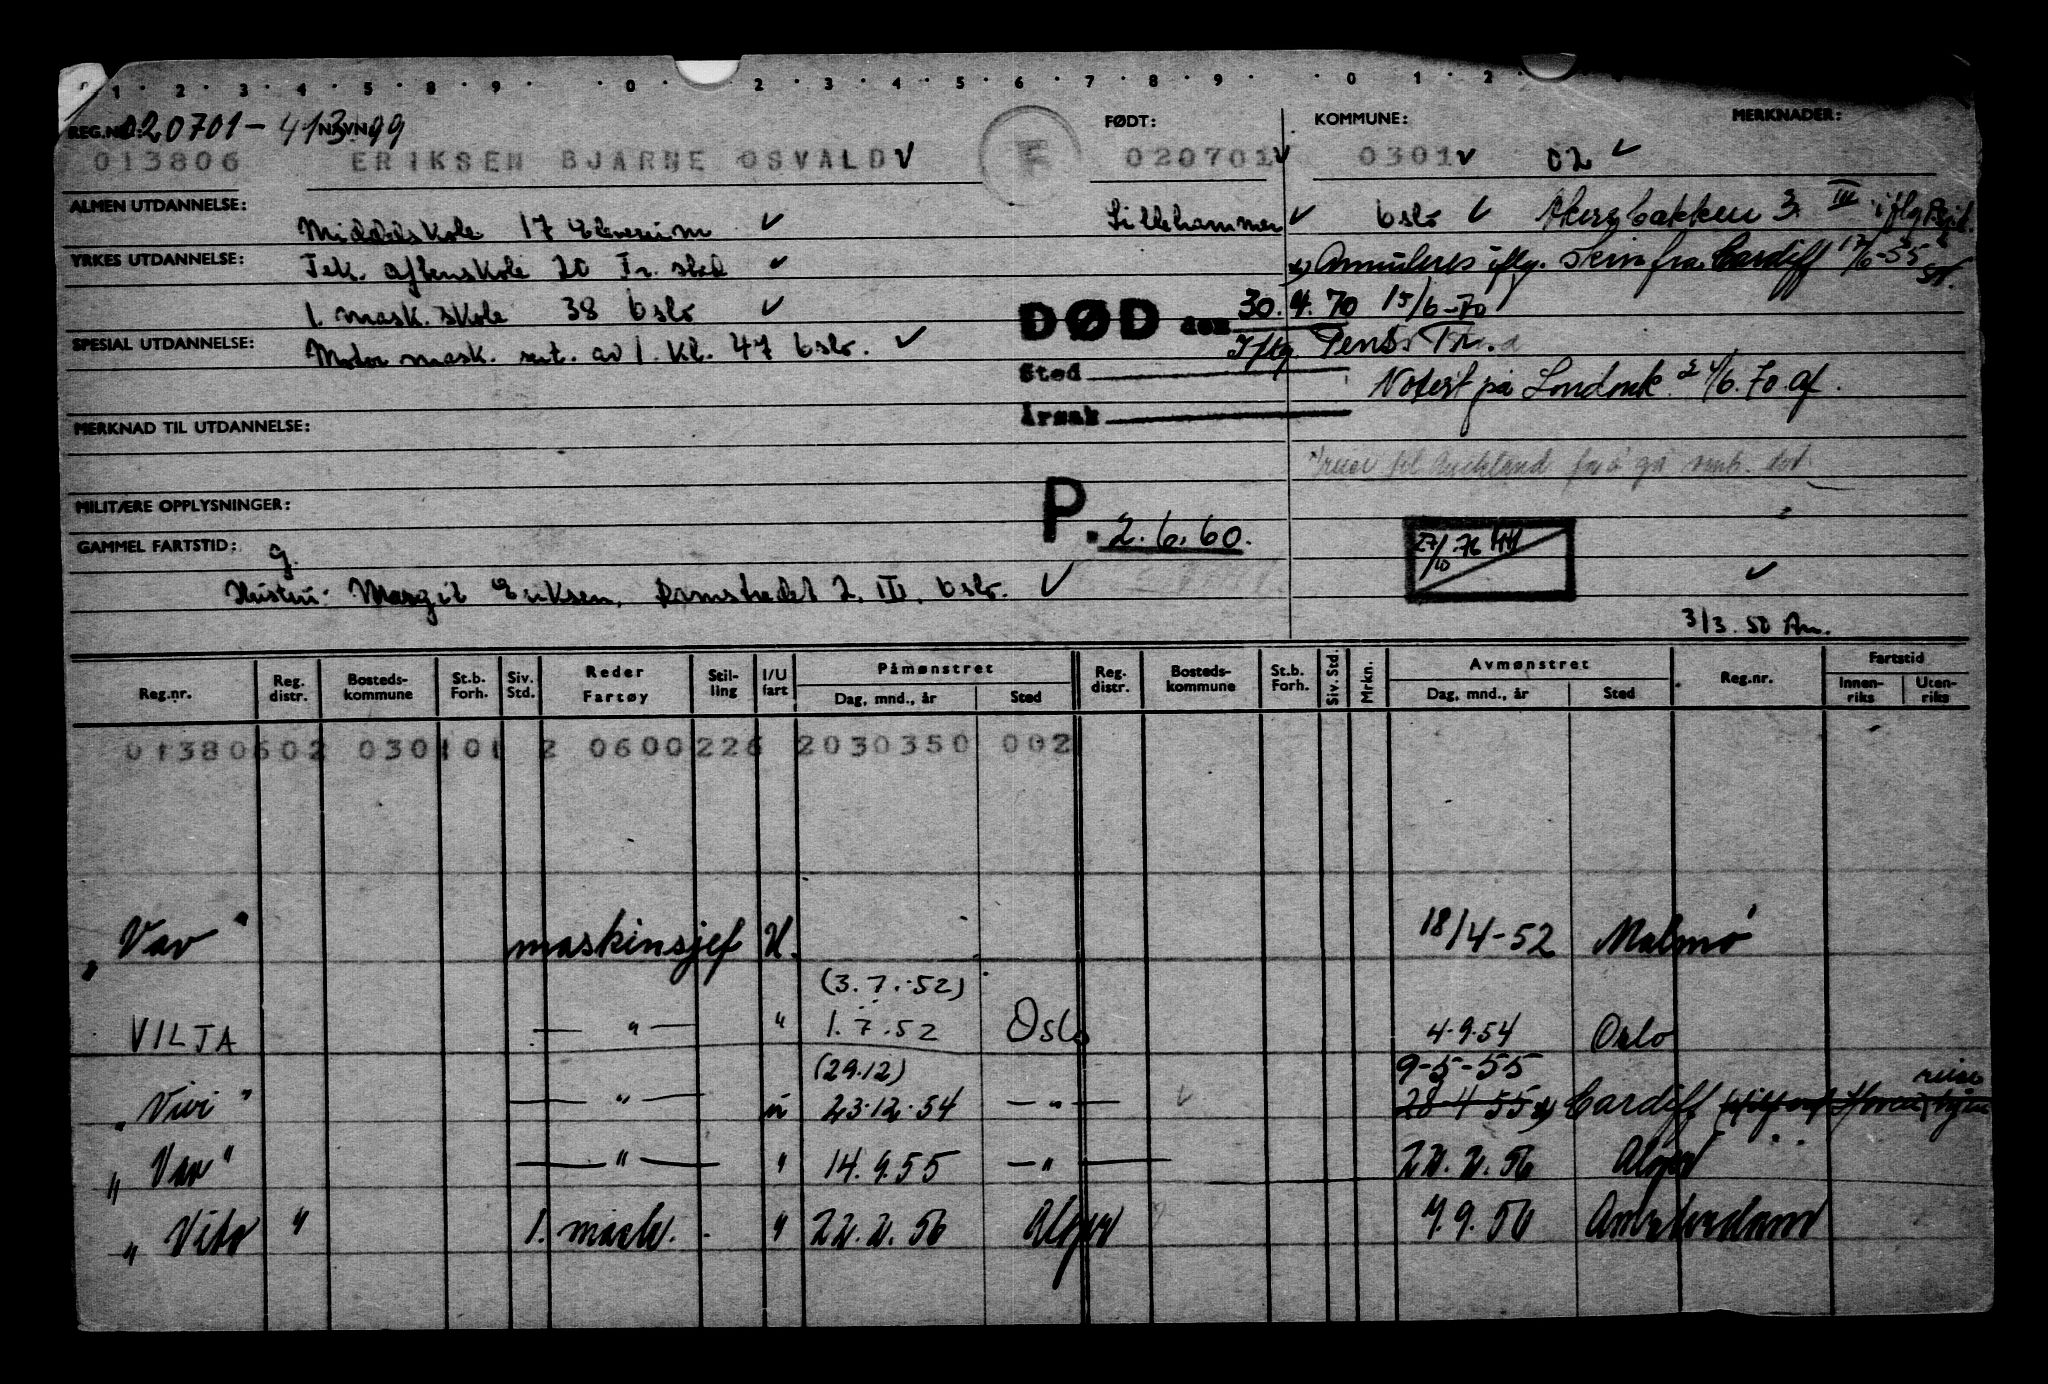 1 · 2 · 3 · 4 · 5 · 8 · 9 · · 0 · · 2 · 3 · 4 · 5 · 6 · 7 · 8 · 9 · · 0 · 1 · 2 ·
REG.NR.: NAVN: FØDT: KOMMUNE: MERKNADER:
020701-41399
013806 ERIKSEN BJARNE OSVALD ✓ F 020701 ✓ 0301 ✓ 02 ✓
ALMEN UTDANNELSE: Middelskole 17 Elverum ✓ Lillehammer ✓ Oslo ✓ Akersbakken 3 III iflg
YRKES UTDANNELSE: Tek. aftenskole 20 ✓ x) Annuleres iflg. skriv fra Cardiff 17/6-55
1. mask. skole 38 Oslo ✓ DØD den 30.4.70 15/6-70
SPESIAL UTDANNELSE: Motor mask. sert. av 1. kl. 47 Oslo. ✓ Iflg. Pens. Tr.
Sted Notert på 2/6.70
Årsak
MERKNAD TIL UTDANNELSE:
reise til Auckland for å gå
MILITÆRE OPPLYSNINGER:
P. 2.6.60. 27/10.76
GAMMEL FARTSTID: g.
Hustru: Margit Eriksen, Damstredet 2. III, Oslo. ✓ ✓
3/3.50 An.
Reg.nr. Reg. distr. Bosteds-kommune St.b. Forh. Siv. Std. Reder Fartøy Stil-ling I/U fart Påmønstret Dag, mnd., år Sted Reg. distr. Bosteds-kommune St.b. Forh. Siv. Std. Mrkn. Avmønstret Dag, mnd., år Sted Reg.nr. Fartstid Innen-riks Uten-riks
01380602 030101 2 0600226 2030350 002
"Var" maskinsjef U. 18/4-52 Malmö
(3.7.52)
VILJA — " — " 1.7.52 Oslo 4.9.54 Oslo
(29.12) 9-5-55
"Vivi" — " — u 23.12.54 — " — 28-4-55 x) Cardiff reise
"Var" — " — " 14.9.55 — " — 22.2.56 Alger
"Vito" 1. mask. " 22.2.56 Alger 7.9.56